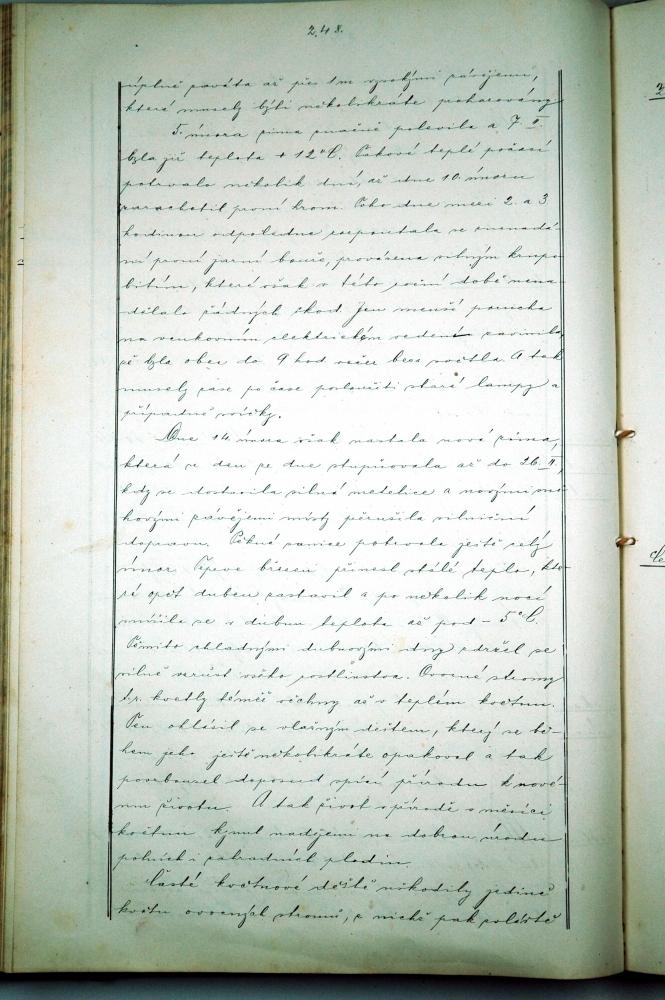 248.
úplně zaváta až přes 1m vysokými závějemi,
které musely býti několikráte prohazovány
5. února zima značně polevila a 7. II.
byla již teplota + 12°C. Takové teplé počasí
potrvalo několik dní, až dne 10. února
zarachotil první hrom. Toho dne mezi 2. a 3
hodinou odpoledne rozpoutala se nenadá-
ní první jarní bouře, provázena silným krupo-
bitím, které však v této roční době nena-
dělalo žádných škod. Jen menší porucha
na venkovním elektrickém vedení zavinila,
že byla obec do 9 hod večer bez světla. A tak
musely zase po čase posloužiti staré lampy a
případně svíčky.
Dne 14. února však nastala nová zima,
která se den ze dne stupňovala až do 26. II,
kdy se dostavila silná metelice a novými sně-
hovými závějemi místy přerušila silniční
dopravu. Pěkná sanice potrvala ještě celý
únor. Teprve březen přinesl stálé teplo, kte-
ré opět duben zastavil a po několik nocí
snížila se v dubnu teplota až pod - 5°C.
Těmito chladnými dubnovými dny zdržel se
silně vzrůst všeho rostlinstva. Ovocné stromy
kvetly téměř všechny až v teplém květnu.
Ten ohlásil se vlažným deštem, který se bě-
hem jeho ještě několikráte opakoval a tak
povzbouzel doposud spící přírodu k nové-
mu životu. A tak život v přírodě v měsíci
květnu kynul nadějemi na dobrou úrodu
polních i zahradních plodin.
Časté květnové deště uškodily jedině
květu ovocných stromů, z nichž pak zvláště